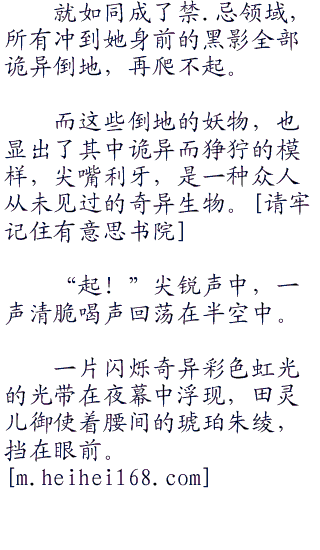 就如同成了禁.忌领域，
所有冲到她身前的黑影全部
诡异倒地，再爬不起。
而这些倒地的妖物，也
显出了其中诡异而狰狞的模
样，尖嘴利牙，是一种众人
从未见过的奇异生物。[请牢
记住有意思书院]
“起！”尖锐声中，一
声清脆喝声回荡在半空中。
一片闪烁奇异彩色虹光
的光带在夜幕中浮现，田灵
儿御使着腰间的琥珀朱绫，
挡在眼前。
[m.heihei168.com]